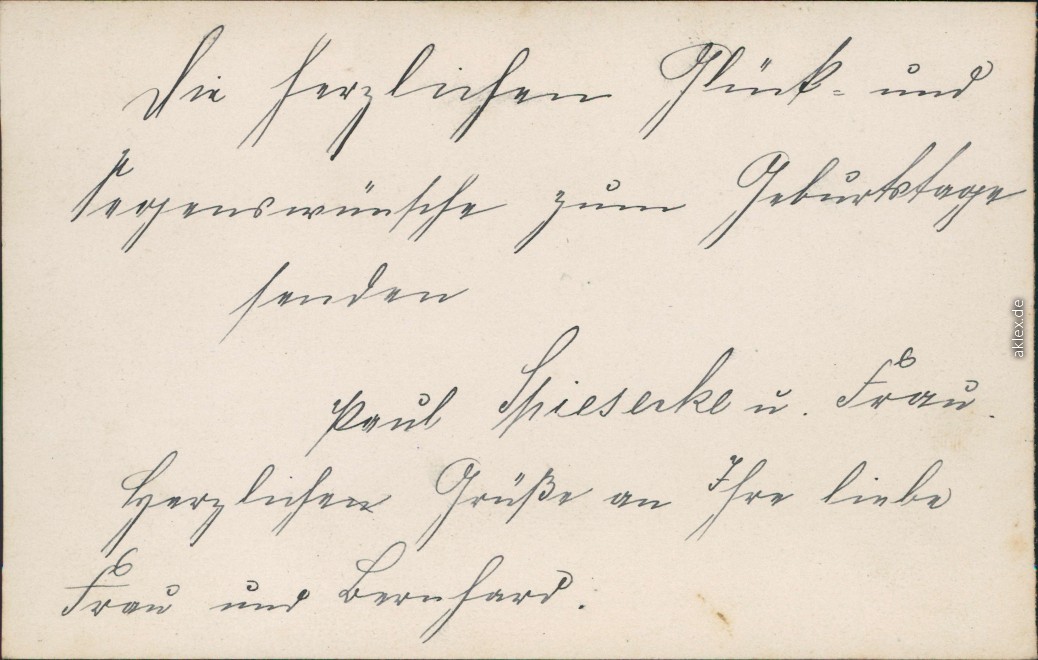 Die herzlichen Glück- und
Segenswünsche zum Geburtstage
senden
Paul u. Frau.
Herzlichen Grüße an Ihre liebe
Frau und Bernhard.
aklex.de